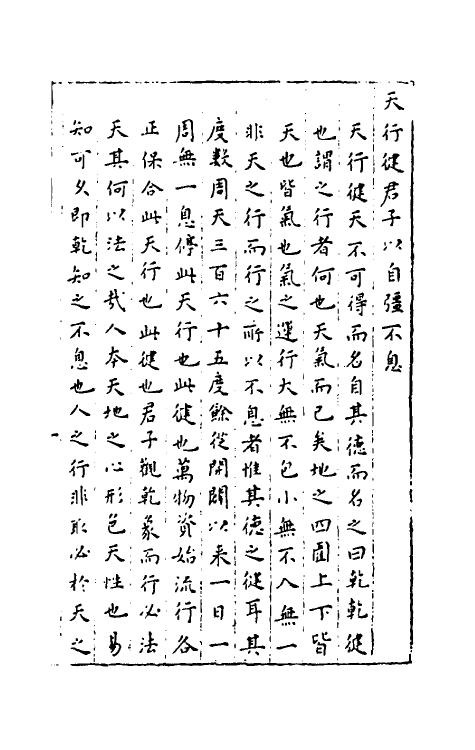 天行健君子以自彊不息
天行健天不可得而名自其德而名之曰乾乾健
也謂之行者何也天氣而已矣地之四圍上下皆
天也皆氣也氣之運行大無不包小無不入無一
非天之行而行之所以不息者惟其德之健耳其
度數周天三百六十五度餘從開闢以来一日一
周無一息停此天行也此健也萬物資始流行各
正保合此天行也此健也君子觀乾象而行必法
天其何以法之㢤人本天地之心形色天性也易
知可久即乾知之不息也人之行非取必於天之